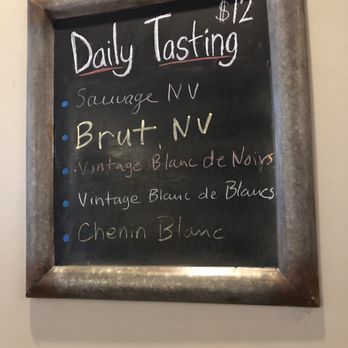 $12
Daily Tasting
Sauvage NV
Brut, NV
Vintage Blanc de Noirs
Vintage Blanc de Blancs
Chenin Blanc